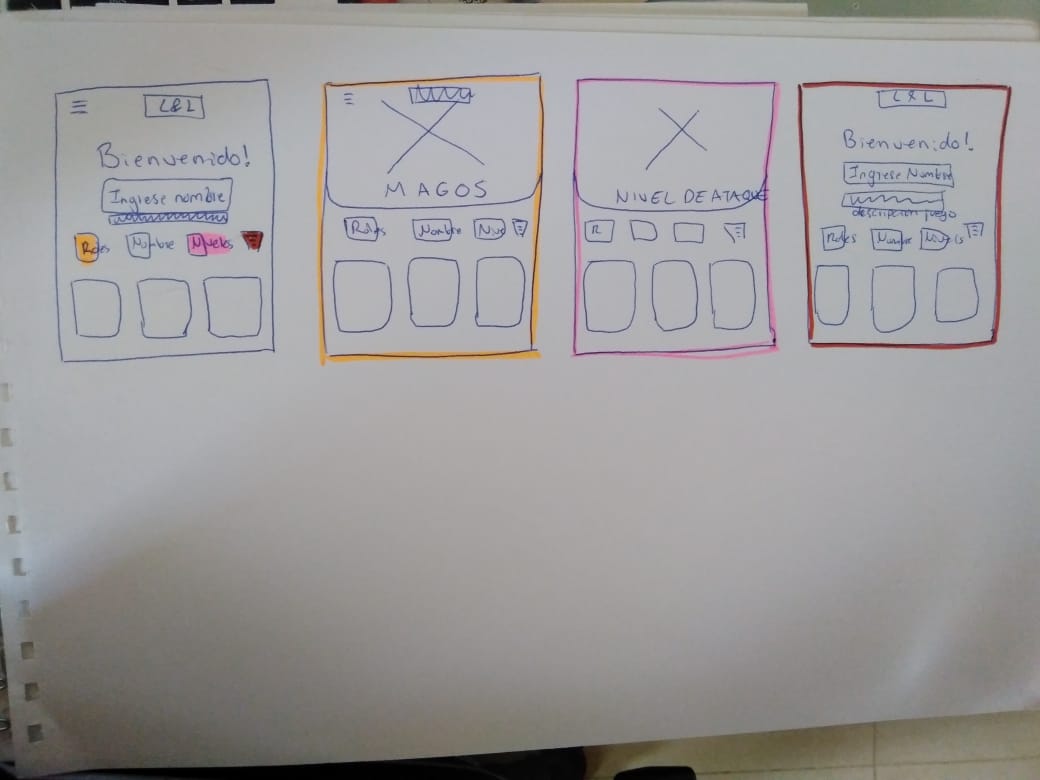 L&L
Bienvenido!
Ingrese nombre
Roles
Nombre
Niveles
MAGOS
Roles
Nombre
Nive
NIVEL DE ATAQUE
R
L&L
Bienvenido!
Ingrese Nombre
descripcion juego
Roles
Nombre